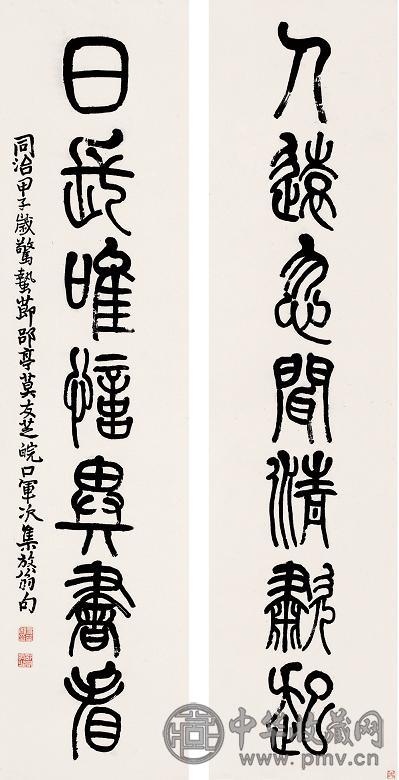 人遠忽聞清歗起
日長唯異書看
同治甲子歲驚蟄節郘亭莫友芝皖口軍次集放翁句
中华收藏网
www.pmv.cn